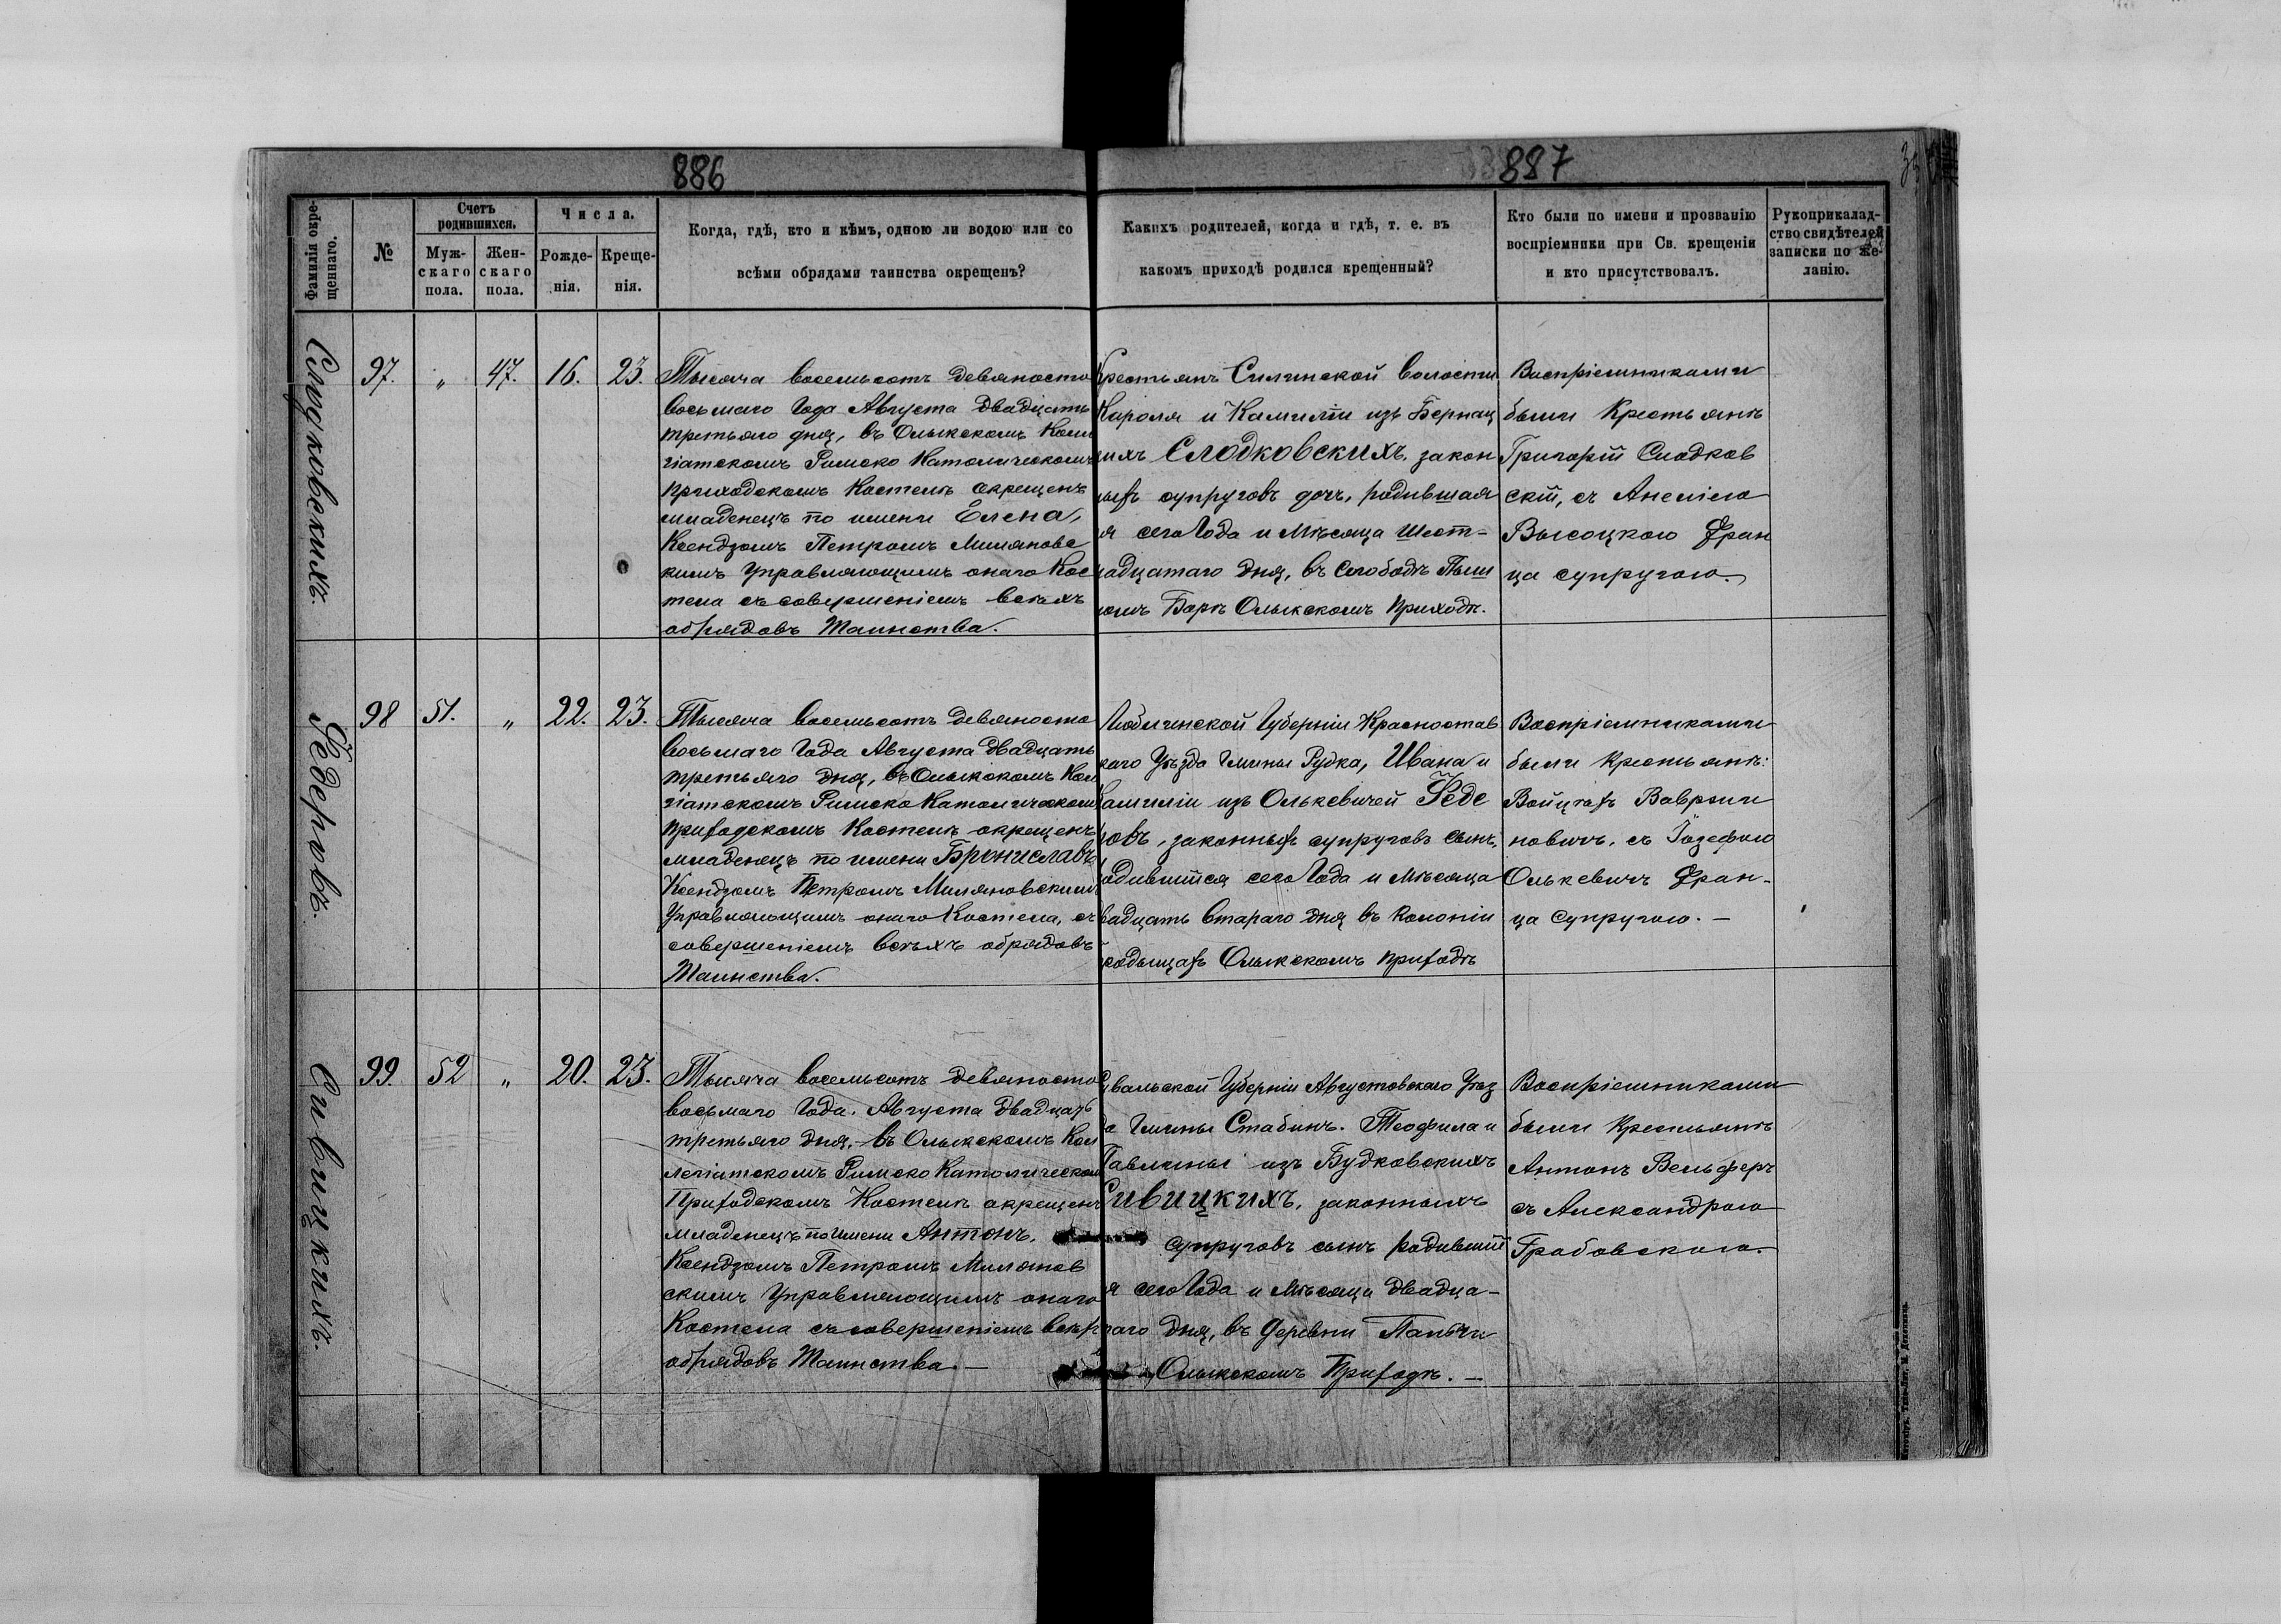 886
887
Фамилія окре-
щеннаго.
№
Счетъ
родившихся.
Муж-
скаго
пола.
Жен-
скаго
пола.
Числа.
Рожде-
нія.
Креще-
нія.
Когда, гдѣ, кто и кѣмъ, одною ли водою или со
всѣми обрядами таинства окрещенъ?
Какихъ родителей, когда и гдѣ, т. е. въ
какомъ приходѣ родился крещенный?
Кто были по имени и прозванію
воспріемники при Св. крещеніи
и кто присутствовалъ.
Рукоприкалад-
ство свидѣтелей
записки по же-
ланію.
97. „ 47. 16. 23.
Тысяча восемьсотъ девяносто
восьмаго Года Августа двадцать
третьяго дня, въ Олыкскомъ Колле
гіатскомъ Римско Католическомъ
приходскомъ Костелѣ окрещенъ
младенецъ по имени Елена,
Ксендзомъ Петромъ Миляновс
кимъ Управляющимъ онаго Кос
тела съ совершеніемъ всѣхъ
обрядовъ Таинства.
Крестьянъ Силинской волости
Кароля и Камиліи изъ Бернац
ихъ Слодковскихъ, закон
ныхъ супруговъ дочь, родившая
я сего Года и Мѣсяца Шест-
надцатаго дня, въ Слободѣ Пыш
номъ Борѣ Олыкскомъ приходѣ.
Воспріемниками
были Крестьянѣ
Григорій Слодков
скій, съ Анеліею
Высоцкою Фран
ца супругою.
Федеровъ.
98 51. „ 22. 23.
Тысяча восемьсотъ девяноста
восьмаго Года Августа двадцать
третьяго дня, въ Олыкскомъ Кол
гіатскомъ Римско Католическомъ
приходскомъ Костелѣ окрещенъ
младенецъ по имени Брониславъ
Ксендзомъ Петромъ Миляновскимъ
Управляющимъ онаго Костела, съ
совершеніемъ всѣхъ обрядовъ
Таинства.
Люблинской Губерніи Красностав
каго Уѣзда Гмины Рудка, Ивана и
Камиліи изъ Олькевичей Феде
ровъ, законныхъ супруговъ сынъ,
родившійся сего Года и Мѣсяца
двадцать втараго дня въ Колоніи
Олыкскомъ приходѣ
Воспріемниками
были Крестьянѣ:
Войцѣхъ Ваврын
новичъ, съ Іозефою
Олькевичъ Фран-
ца Супругою. —
Сивицкихъ.
99. 52 „ 20. 23.
Тысяча восемьсотъ девяносто
восьмаго Года. Августа двадцать
третьяго дня, въ Олыкскомъ Кол
легіатскомъ Римско Католическом
Приходскомъ Костелѣ окрещенъ
младенецъ по имени Антонъ,
Ксендзомъ Петромъ Милянов
скимъ Управляющимъ онаго
Костела съ совершеніемъ всѣхъ
обрядовъ Таинства. —
Сувальской Губерніи Августовскаго Уѣз
да Гмины Стабинъ. Теофила и
Павлины изъ Будковскихъ
Сивицкихъ, законныхъ
супруговъ сынъ родившій
я сего Года и Мѣсяца двадца-
таго дня, въ деревни
Олыкскомъ Приходѣ. —
Воспріемниками
были Крестьянѣ
Антонъ Вельферъ
съ Александрою
Грабовскою.